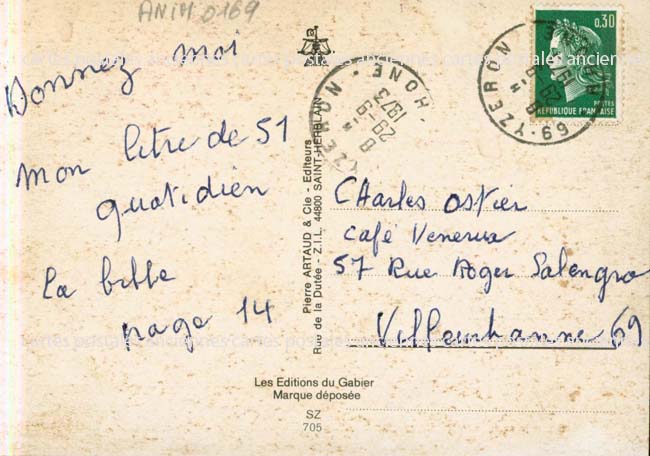 ANIM 0169
Donnez moi
mon litre de 51
quotidien
La bible
page 14
Pierre ARTAUD & Cie - Editeurs
Rue de la Dutée - Z.I.L. 44800 SAINT-HERBLAIN
Les Editions du Gabier
Marque déposée
SZ
705
0,30
POSTES
REPUBLIQUE FRANÇAISE
69-YZERON
RHONE
8 H
29-9
1973
YZERON
RHONE
8 H
29-9
1973
Charles Ostier
Café
57 Rue Roger Salengro
69
cartes postales anciennes